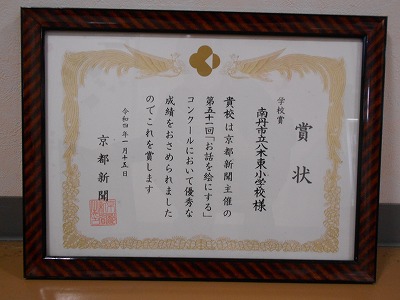 賞状
学校賞
南丹市立八木東小学校様
貴校は京都新聞主催の
第五十一回「お話を絵にする」
コンクールにおいて優秀な
成績をおさめられました
のでこれを賞します
令和四年一月十五日
京都新聞